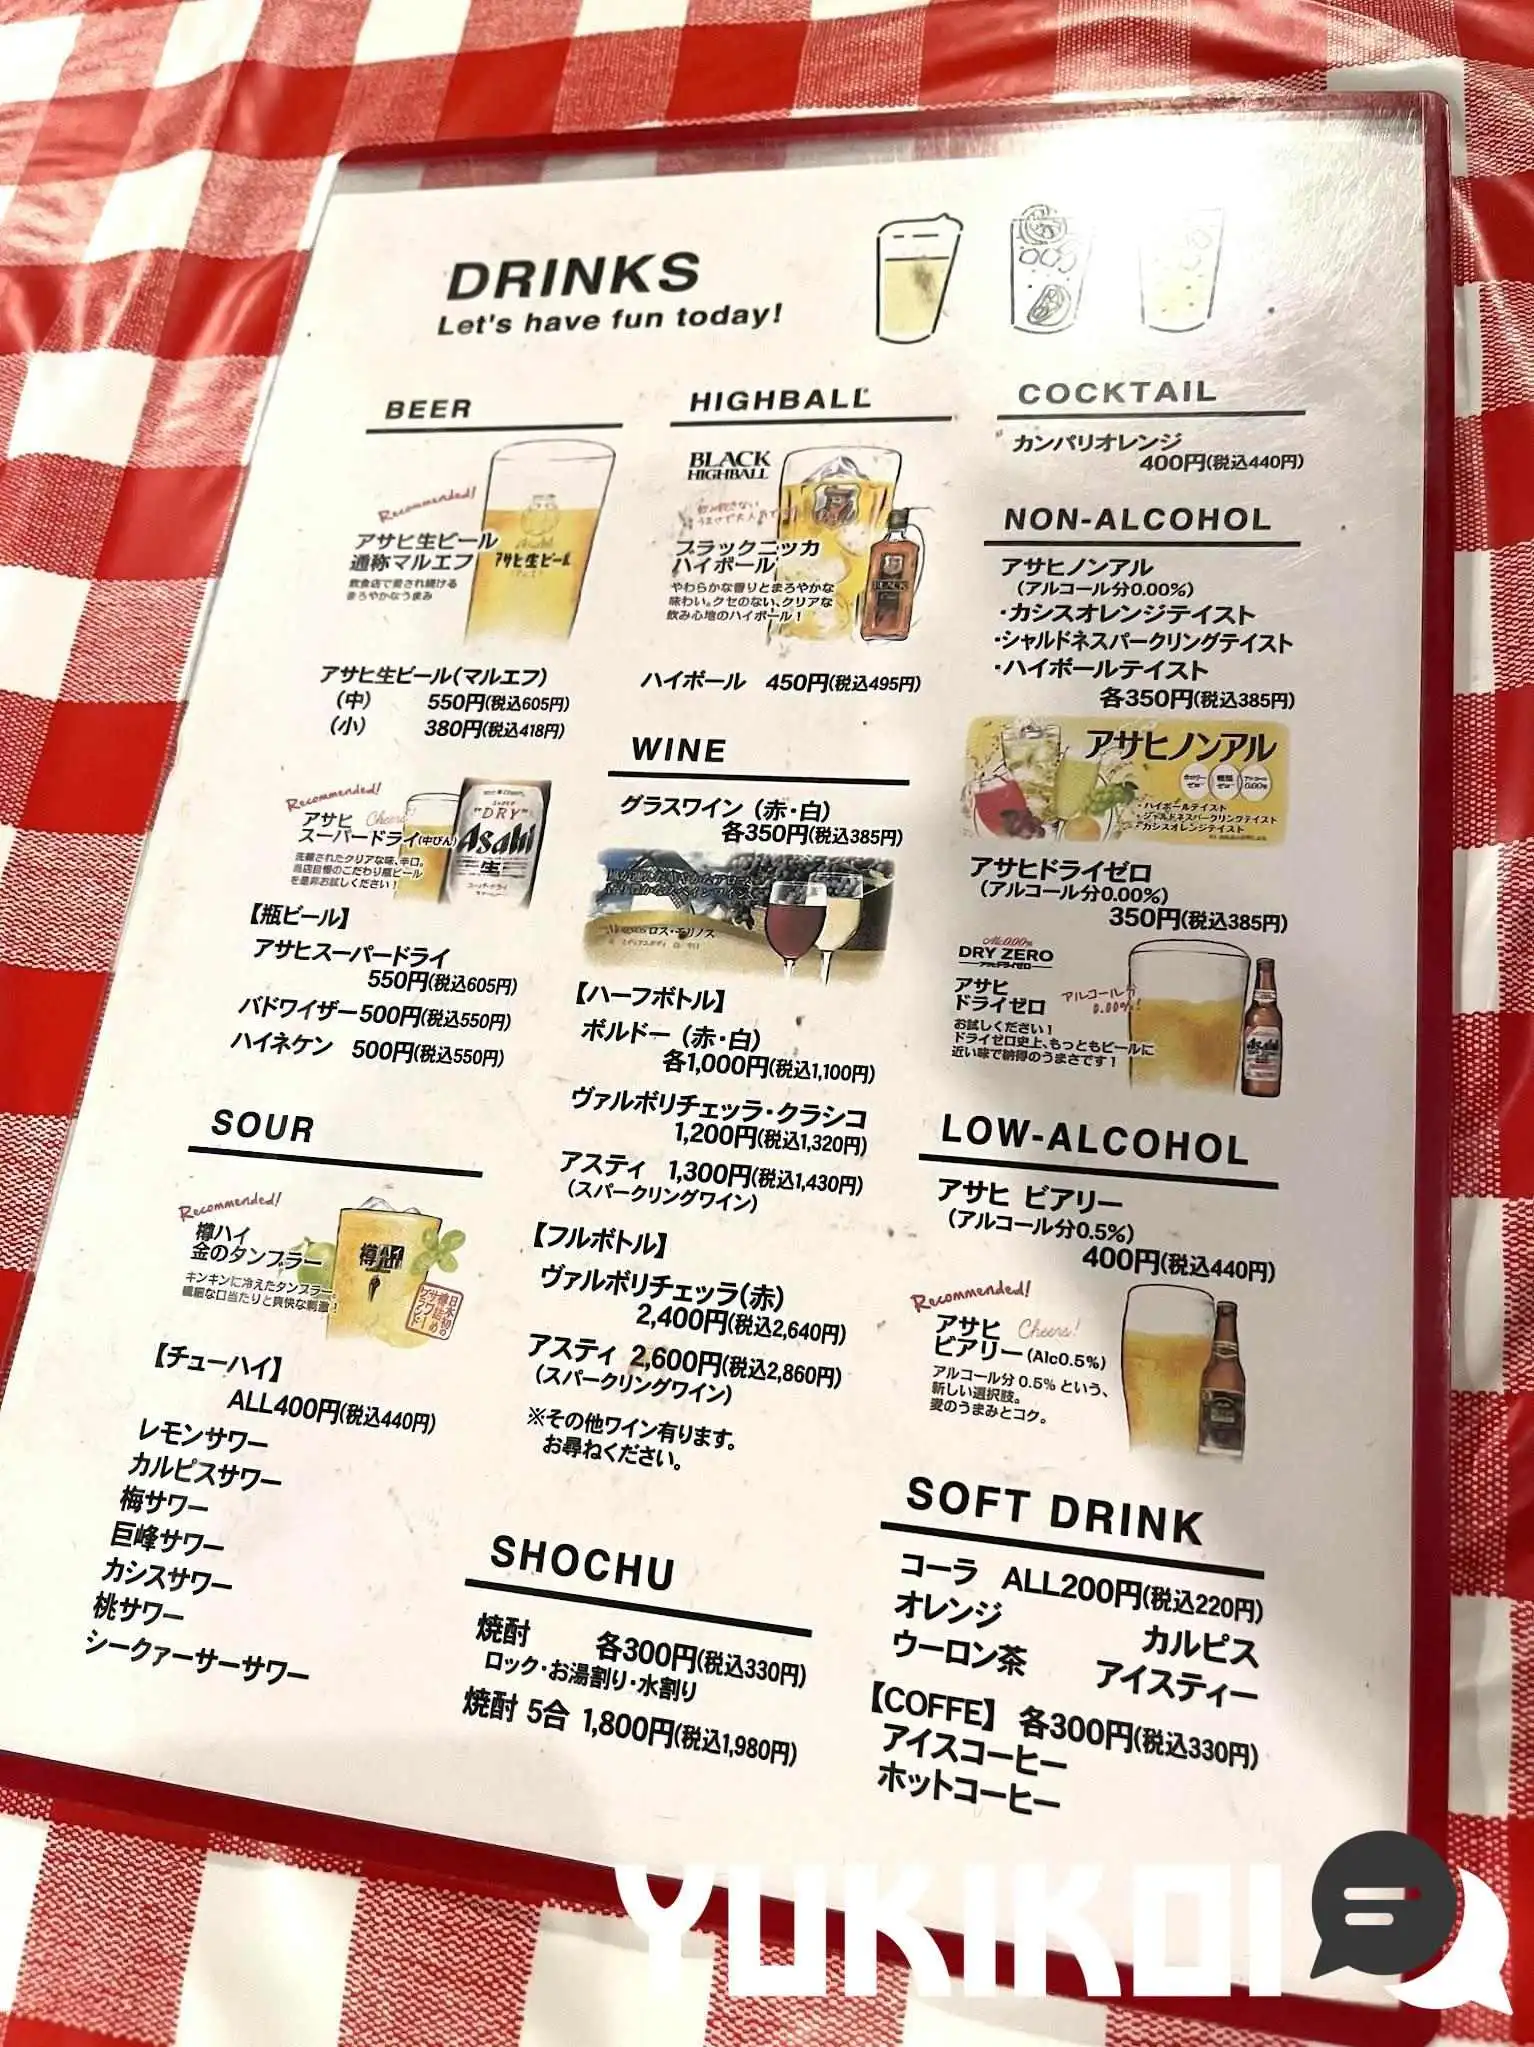 DRINKS
Let's have fun today!
BEER
Recommended!
アサヒ生ビール
通称マルエフ
飲食店で愛され続ける
まろやかなうまみ
Asahi
アサヒ生ビール
アサヒ生ビール(マルエフ)
(中) 550円(税込605円)
(小) 380円(税込418円)
Recommended!
アサヒ Cheers!
スーパードライ(中びん)
洗練されたクリアな味、辛口。
当店自慢のこだわり瓶ビール
を是非お試しください!
SUPER
"DRY"
Asahi
生
スーパードライ
【瓶ビール】
アサヒスーパードライ
550円(税込605円)
バドワイザー 500円(税込550円)
ハイネケン 500円(税込550円)
SOUR
Recommended!
樽ハイ
金のタンブラー
キンキンに冷えたタンブラー、
繊細な口当たりと爽快な刺激!
日本初の
樽詰め
サワー
ブランド
【チューハイ】
ALL400円(税込440円)
レモンサワー
カルピスサワー
梅サワー
巨峰サワー
カシスサワー
桃サワー
シークァーサーサワー
HIGHBALL
BLACK
HIGHBALL
ブラックニッカ
ハイボール
やわらかな香りとまろやかな
味わい。クセのない、クリアな
飲み心地のハイボール!
BLACK
ハイボール 450円(税込495円)
WINE
グラスワイン (赤・白)
各350円(税込385円)
ロス・モリノス
【ハーフボトル】
ボルドー (赤・白)
各1,000円(税込1,100円)
ヴァルポリチェッラ・クラシコ
1,200円(税込1,320円)
アスティ 1,300円(税込1,430円)
(スパークリングワイン)
【フルボトル】
ヴァルポリチェッラ(赤)
2,400円(税込2,640円)
アスティ 2,600円(税込2,860円)
(スパークリングワイン)
※その他ワイン有ります。
お尋ねください。
SHOCHU
焼酎 各300円(税込330円)
ロック・お湯割り・水割り
焼酎 5合 1,800円(税込1,980円)
COCKTAIL
カンパリオレンジ
400円(税込440円)
NON-ALCOHOL
アサヒノンアル
(アルコール分0.00%)
・カシスオレンジテイスト
・シャルドネスパークリングテイスト
・ハイボールテイスト
各350円(税込385円)
アサヒノンアル
カロリーゼロ 糖類ゼロ アルコール0.00%
・ハイボールテイスト
・シャルドネスパークリングテイスト
・カシスオレンジテイスト
アサヒドライゼロ
(アルコール分0.00%)
350円(税込385円)
Alc.0.00%
DRY ZERO
アサヒドライゼロ
アサヒ
ドライゼロ
アルコール分
0.00%!
お試しください!
ドライゼロ史上、もっともビールに
近い味で納得のうまさです!
Asahi
LOW-ALCOHOL
アサヒ ビアリー
(アルコール分0.5%)
400円(税込440円)
Recommended!
アサヒ Cheers!
ビアリー(Alc0.5%)
アルコール分 0.5% という、
新しい選択肢。
麦のうまみとコク。
SOFT DRINK
コーラ ALL200円(税込220円)
オレンジ カルピス
ウーロン茶 アイスティー
【COFFE】 各300円(税込330円)
アイスコーヒー
ホットコーヒー
YUKIKOI